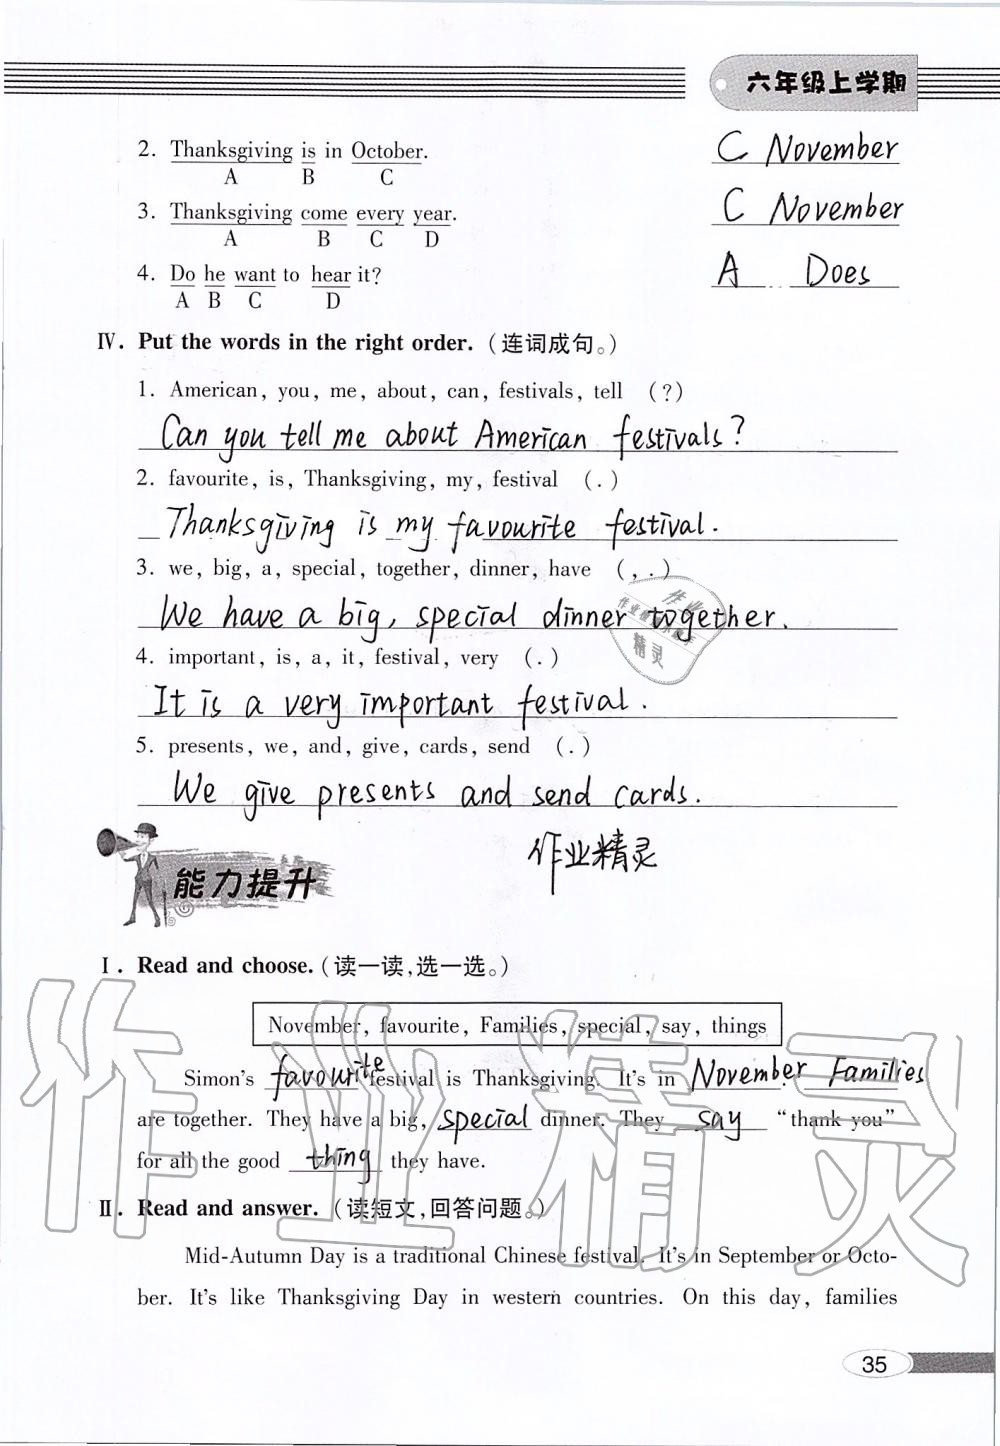 六年级上学期
2. Thanksgiving is in October. C November
A B C
3. Thanksgiving come every year. C November
A B C D
4. Do he want to hear it? A Does
A B C D
Ⅳ. Put the words in the right order. (连词成句。)
1. American, you, me, about, can, festivals, tell (?)
Can you tell me about American festivals?
2. favourite, is, Thanksgiving, my, festival (.)
Thanksgiving is my favourite festival.
3. we, big, a, special, together, dinner, have (, .)
We have a big, special dinner together.
4. important, is, a, it, festival, very (.)
It is a very important festival.
5. presents, we, and, give, cards, send (.)
We give presents and send cards.
作业精灵
能力提升
Ⅰ. Read and choose. (读一读,选一选。)
November, favourite, Families, special, say, things
Simon's favourite festival is Thanksgiving. It's in November. Families
are together. They have a big, special dinner. They say "thank you"
for all the good thing they have.
Ⅱ. Read and answer. (读短文,回答问题。)
Mid-Autumn Day is a traditional Chinese festival. It's in September or Octo-
ber. It's like Thanksgiving Day in western countries. On this day, families
35
作业精灵